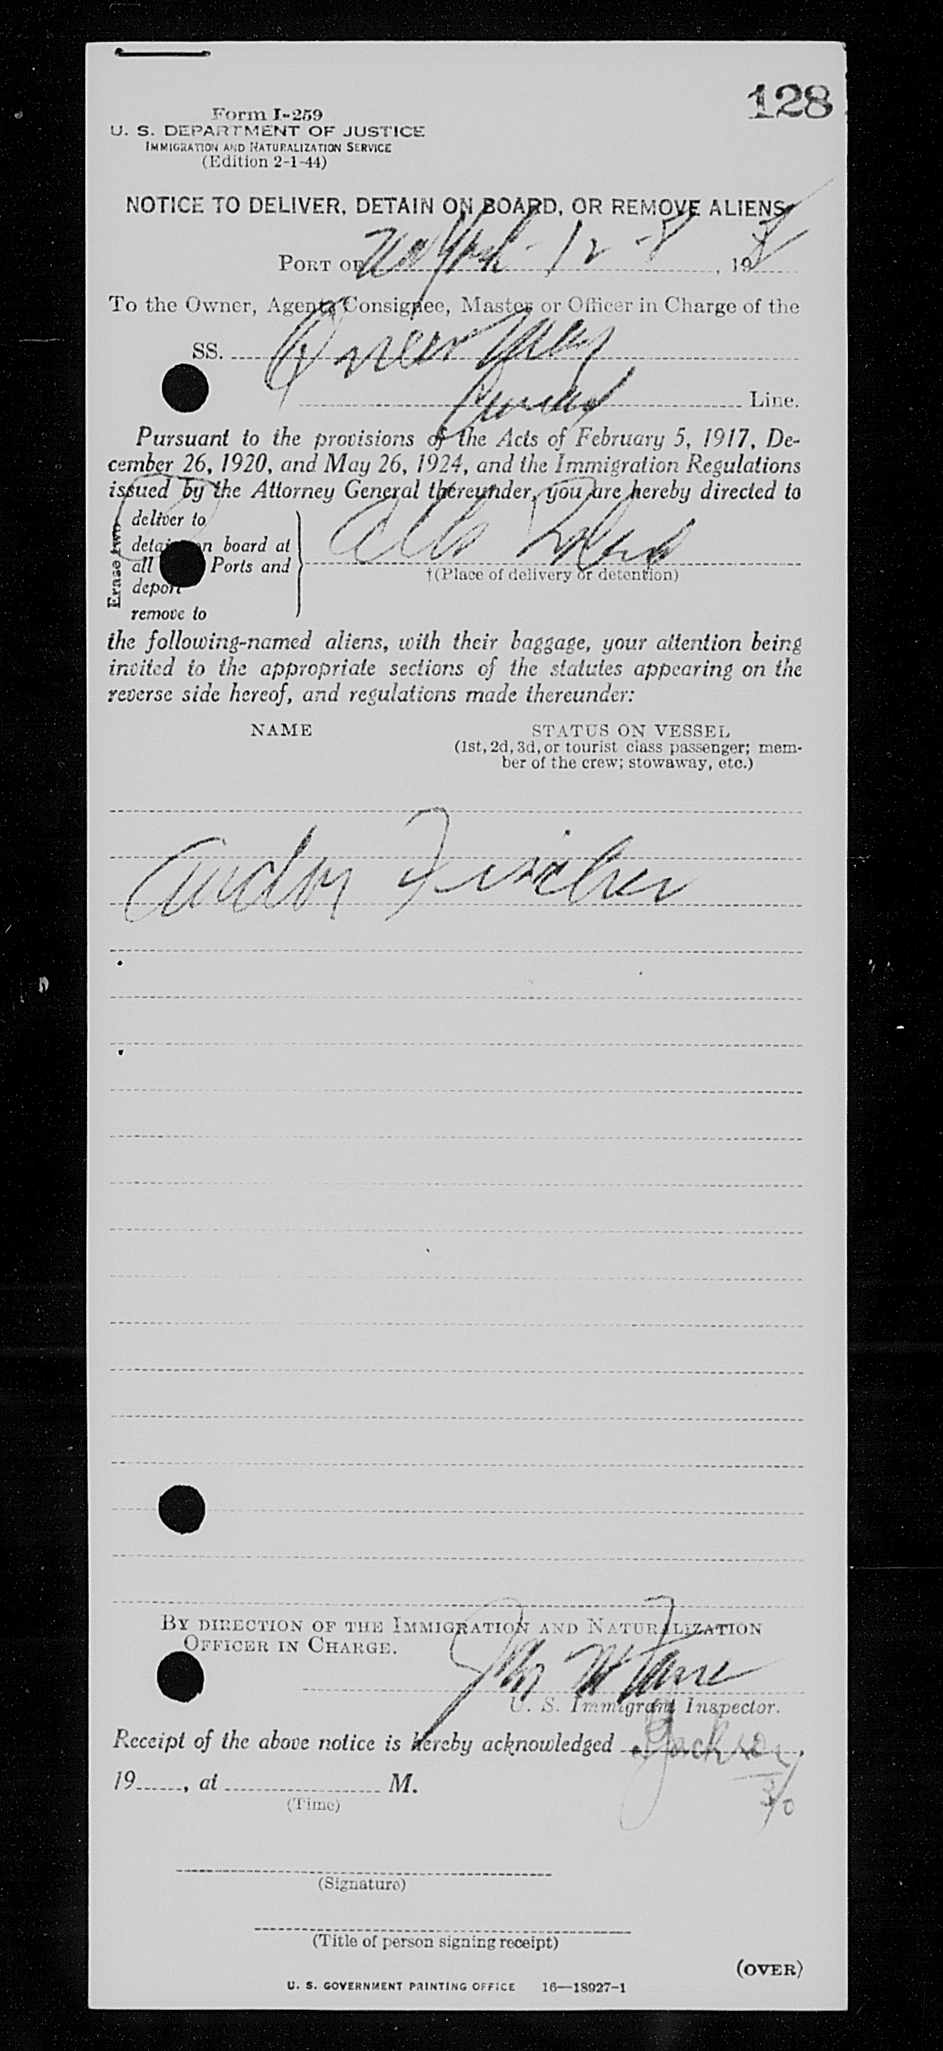 128
Form I-259
U. S. DEPARTMENT OF JUSTICE
IMMIGRATION AND NATURALIZATION SERVICE
(Edition 2-1-44)
NOTICE TO DELIVER, DETAIN ON BOARD, OR REMOVE ALIENS
PORT OF New York - 12 - 8, 19
To the Owner, Agent, Consignee, Master or Officer in Charge of the
SS. Queen Mary
Cunard Line.
Pursuant to the provisions of the Acts of February 5, 1917, De-
cember 26, 1920, and May 26, 1924, and the Immigration Regulations
issued by the Attorney General thereunder, you are hereby directed to
Erase two
deliver to
detain on board at
all Ports and
deport
remove to
Ellis Island
†(Place of delivery or detention)
the following-named aliens, with their baggage, your attention being
invited to the appropriate sections of the statutes appearing on the
reverse side hereof, and regulations made thereunder:
NAME STATUS ON VESSEL
(1st, 2d, 3d, or tourist class passenger; mem-
ber of the crew; stowaway, etc.)
Andor Fischer
BY DIRECTION OF THE IMMIGRATION AND NATURALIZATION
OFFICER IN CHARGE.
U. S. Immigrant Inspector.
Receipt of the above notice is hereby acknowledged Jackson,
19, at M.
(Time)
(Signature)
(Title of person signing receipt)
(OVER)
U. S. GOVERNMENT PRINTING OFFICE 16—18927-1